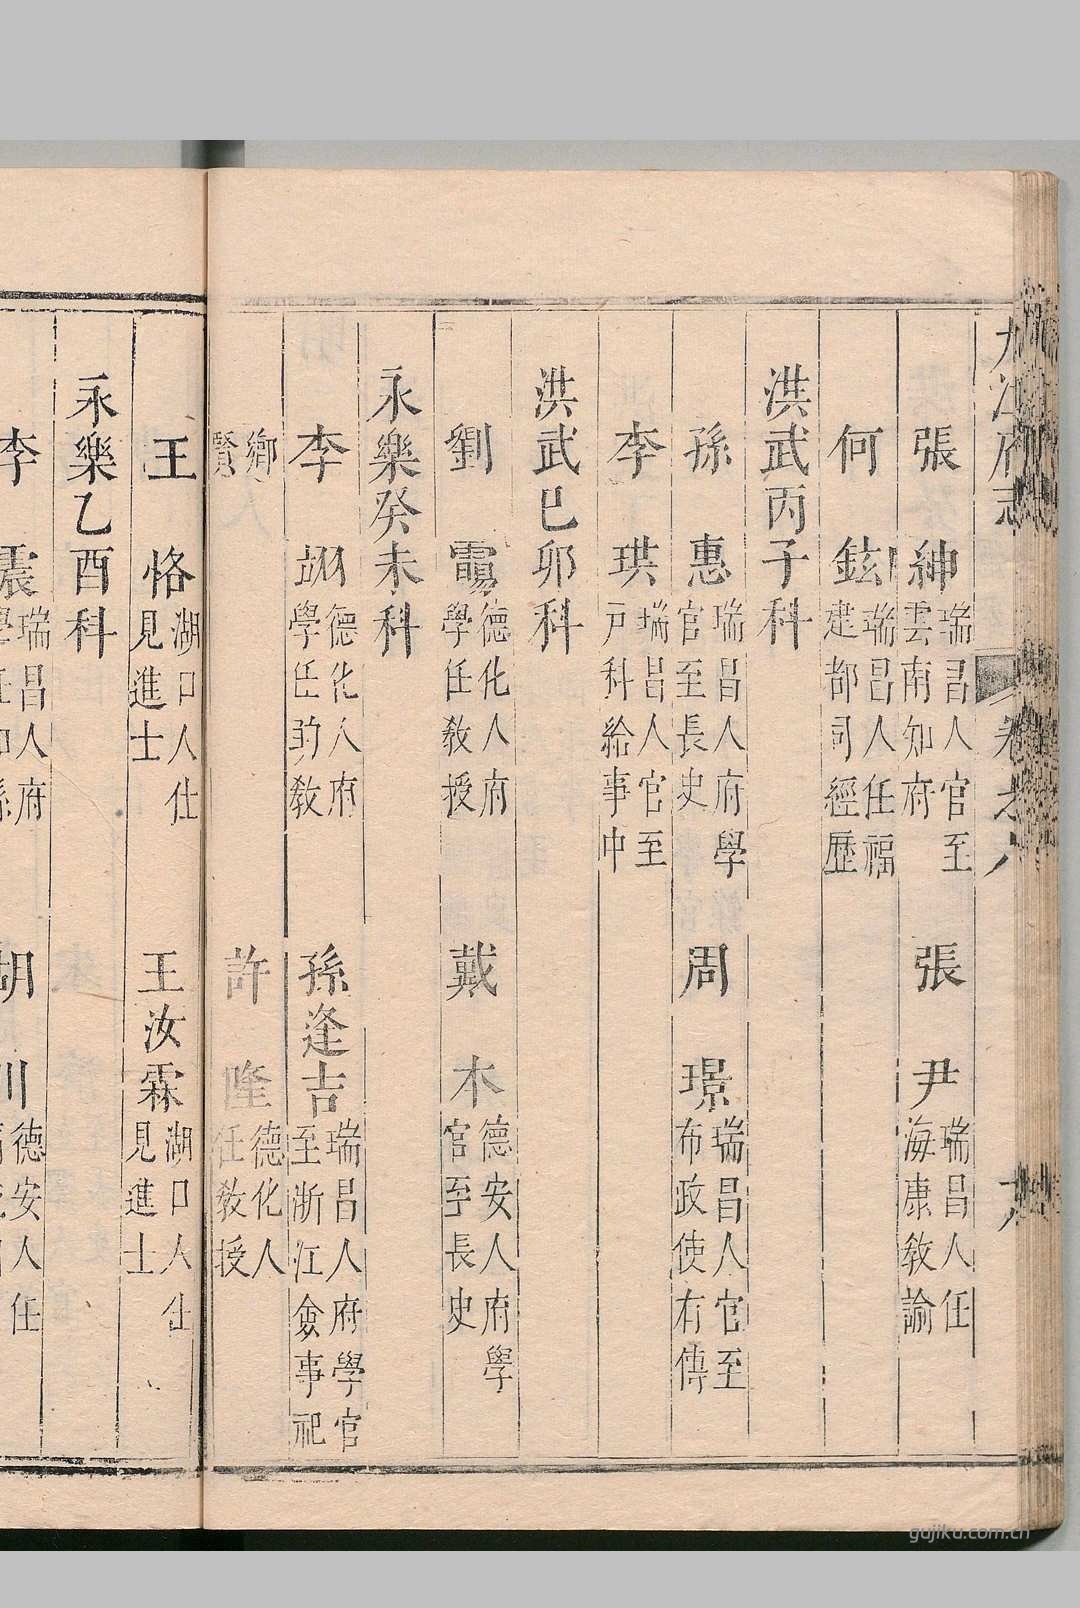 九江府志 卷之八
張紳瑞昌人官至雲南知府 張尹瑞昌人任海康教諭
何鉉瑞昌人任福建都司經歷
洪武丙子科
孫惠瑞昌人府學官至長史 周璟瑞昌人官至布政使有傳
李珙瑞昌人官至戶科給事中
洪武巳卯科
劉 德化人府學任教授 戴木德安人府學官至長史
永樂癸未科
李 德化人府學任助教 孫逢吉瑞昌人府學官至浙江僉事祀
鄉賢 許隆德化人任教授
王恪湖口人仕見進士 王汝霖湖口人仕見進士
永樂乙酉科
李震瑞昌人府學任知縣 胡川德安人任
gujiku.com.cn